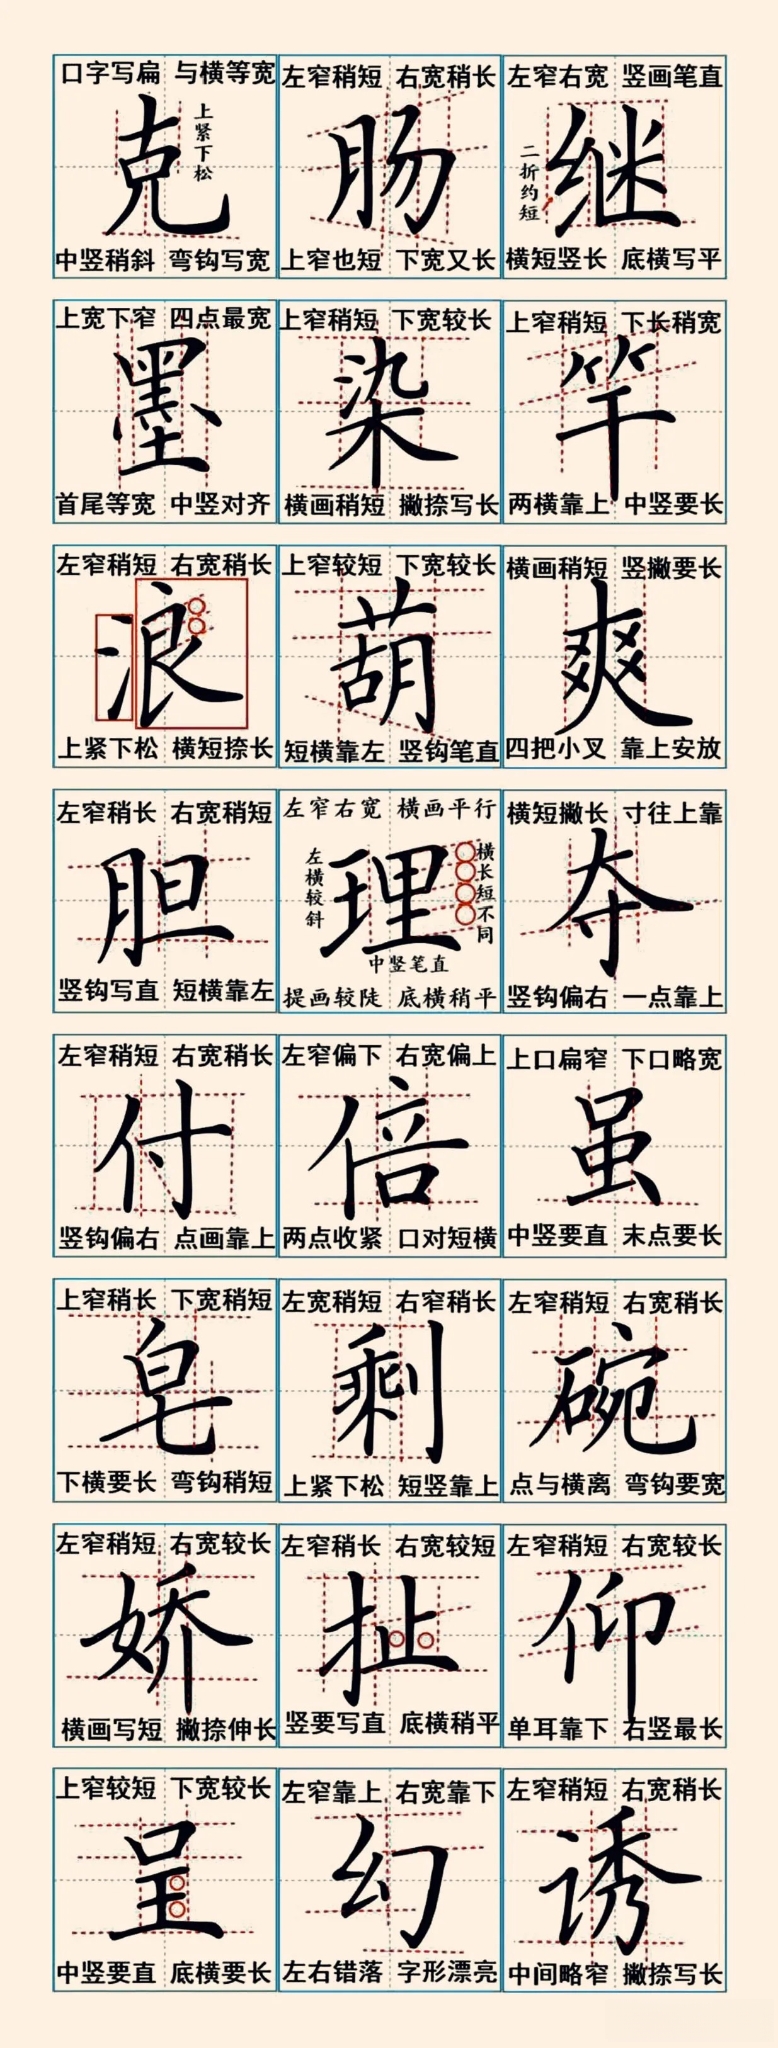 口字写扁 与横等宽
克
上紧下松
中竖稍斜 弯钩写宽
左窄稍短 右宽稍长
肠
上窄也短 下宽又长
左窄右宽 竖画笔直
二折约短
继
横短竖长 底横写平
上宽下窄 四点最宽
墨
首尾等宽 中竖对齐
上窄稍短 下宽较长
染
横画稍短 撇捺写长
上窄稍短 下长稍宽
竿
两横靠上 中竖要长
左窄稍短 右宽稍长
浪
上紧下松 横短捺长
上窄较短 下宽较长
葫
短横靠左 竖钩笔直
横画稍短 竖撇要长
爽
四把小叉 靠上安放
左窄稍长 右宽稍短
胆
竖钩写直 短横靠左
左窄右宽 横画平行
左横较斜
理
横长短不同
中竖笔直
提画较陡 底横稍平
横短撇长 寸往上靠
夺
竖钩偏右 一点靠上
左窄稍短 右宽稍长
付
竖钩偏右 点画靠上
左窄偏下 右宽偏上
倍
两点收紧 口对短横
上口扁窄 下口略宽
虽
中竖要直 末点要长
上窄稍长 下宽稍短
皂
下横要长 弯钩稍短
左宽稍短 右窄稍长
剩
上紧下松 短竖靠上
左窄稍短 右宽稍长
碗
点与横离 弯钩要宽
左窄稍短 右宽较长
娇
横画写短 撇捺伸长
左窄稍长 右宽较短
扯
竖要写直 底横稍平
左窄稍短 右宽较长
仰
单耳靠下 右竖最长
上窄较短 下宽较长
呈
中竖要直 底横要长
左窄靠上 右宽靠下
幻
左右错落 字形漂亮
左窄稍短 右宽稍长
诱
中间略窄 撇捺写长